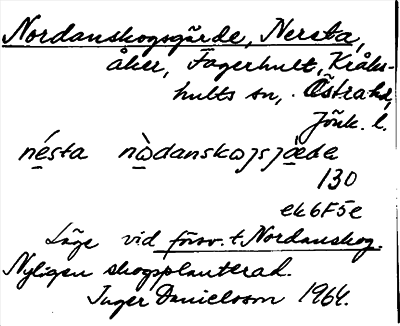 Nordanskogsgärde, Nersta,
åker, Fagerhult, Kråks-
hults sn, Östra hd,
Jönk. l.
nésta nòdanskωgsjäde
130
ek6F5e
Läge vid försv. t. Nordanskog.
Nyligen skogsplanterad.
Inger Danielsson 1964.